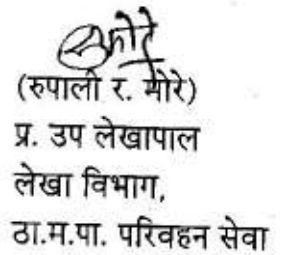 (रुपाली र. मोरे)
प्र. उप लेखापाल
लेखा विभाग,
ठा.म.पा. परिवहन सेवा